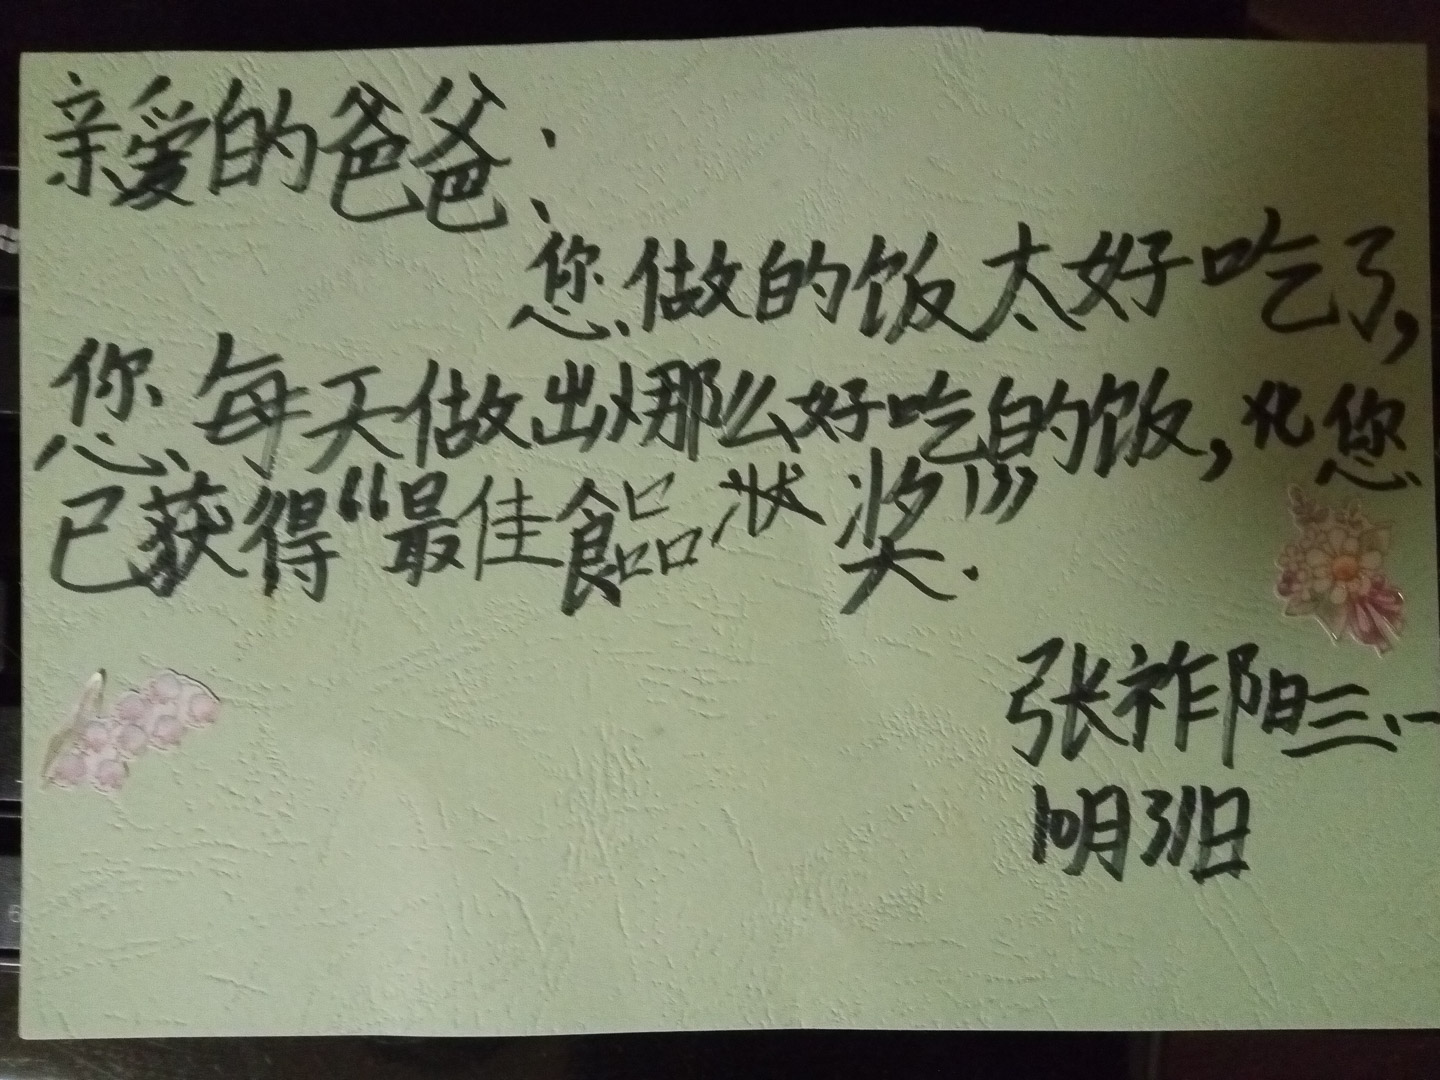 亲爱的爸爸：
您做的饭太好吃了，
您每天做出那么好吃的饭，您
已获得“最佳食品状奖”.
张祚阳三.一
10月31日